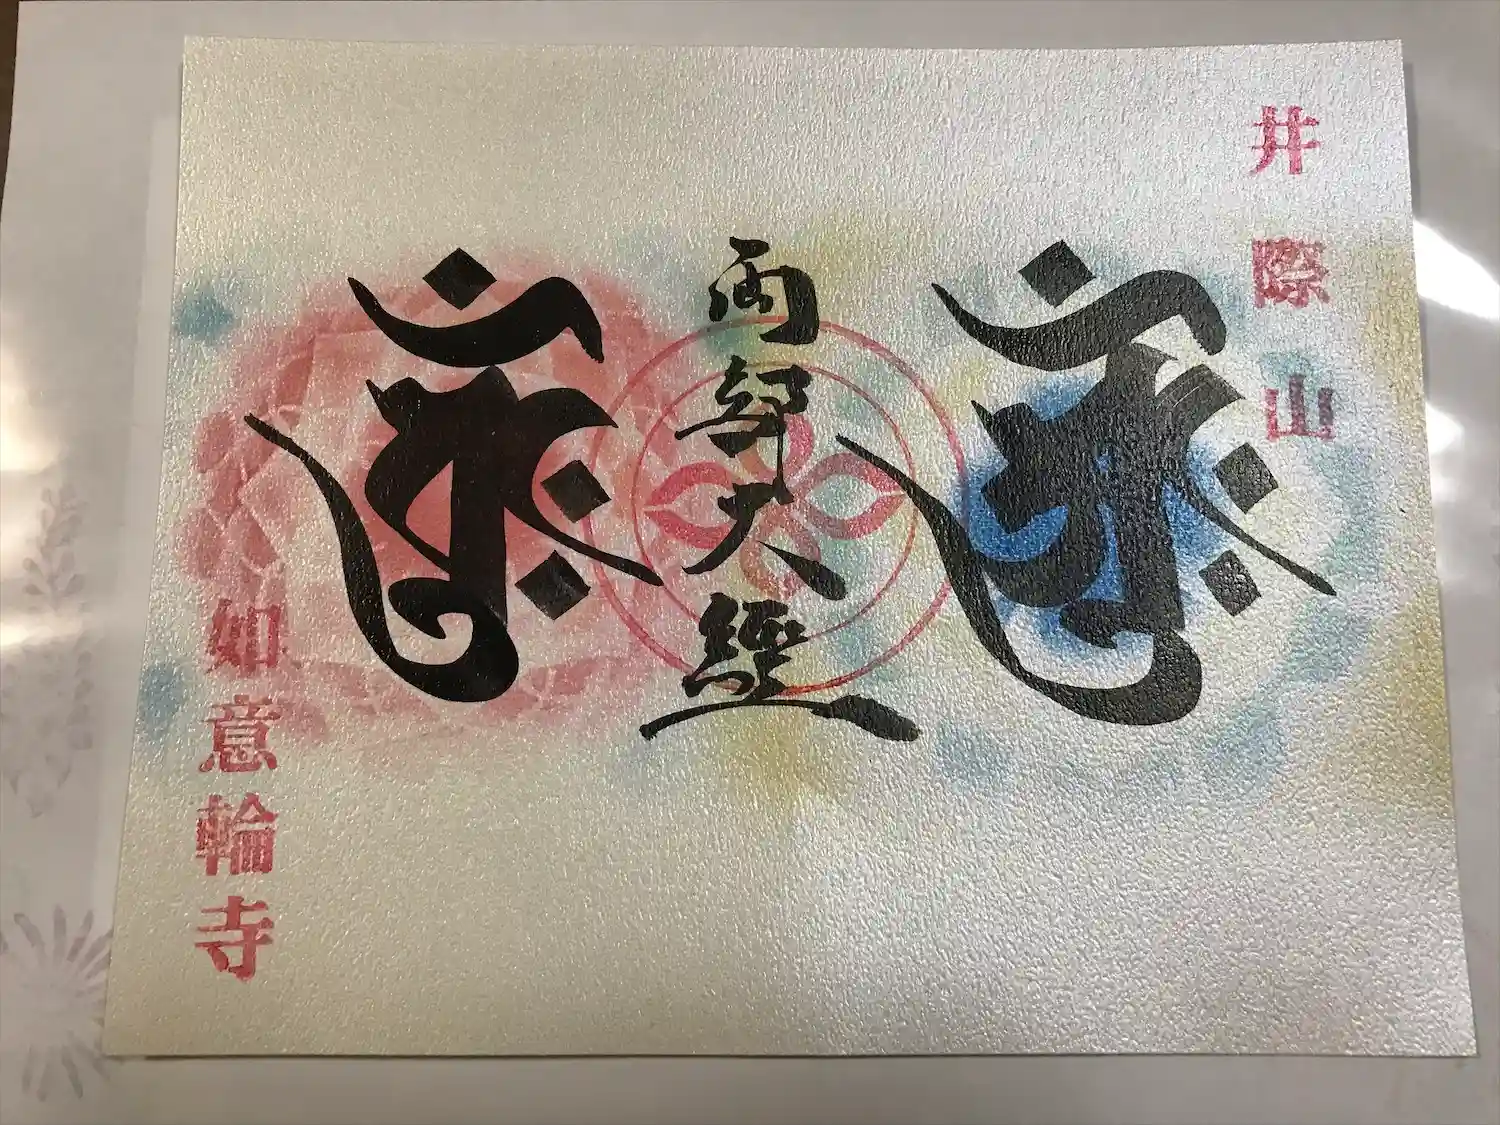 井際山
両部大經
如意輪寺